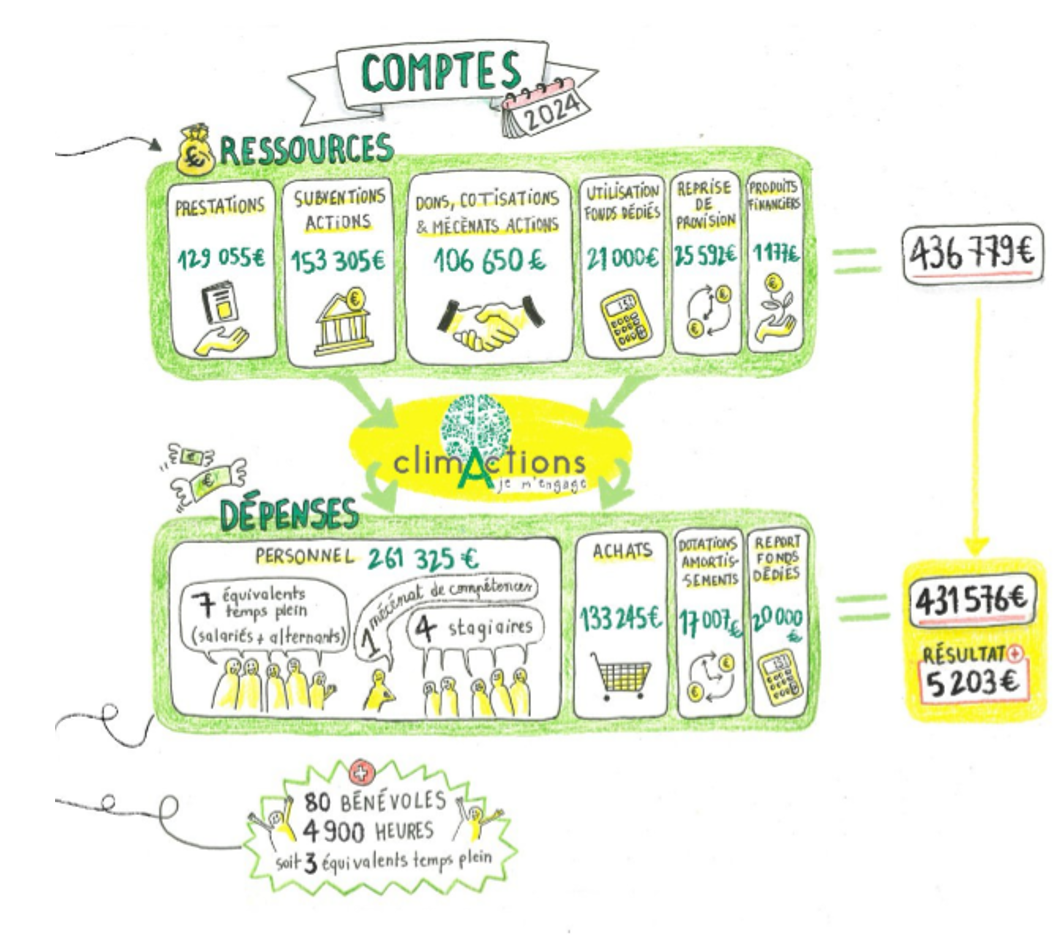 COMPTES
2024
RESSOURCES
PRESTATIONS
129 055€
SUBVENTIONS
ACTIONS
153 305€
DONS, COTISATIONS
& MÉCÈNATS ACTIONS
106 650 €
UTILISATION
FONDS DÉDIÉS
21 000€
REPRISE
DE
PROVISION
25 592€
PRODUITS
FINANCIERS
1177€
=
436 779€
climActions
je m'engage
DÉPENSES
PERSONNEL 261 325 €
7 équivalents
temps plein
(salariés + alternants)
1 mécénat de compétences
4 stagiaires
ACHATS
133 245€
DOTATIONS
AMORTIS-
SEMENTS
17 007€
REPORT
FONDS
DÉDIÉS
20 000
€
=
431 576€
RÉSULTAT +
5 203€
+
80 BÉNÉVOLES
4 900 HEURES
soit 3 équivalents temps plein